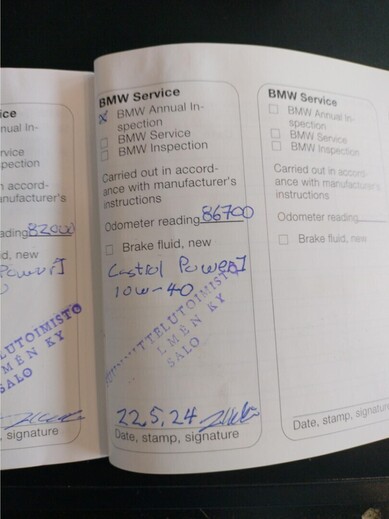 ice
nual In-
rvice
pection
n accord-
anufacturer's
ading 82000
id, new
LUTOIMISTO
MÉN KY
SALO
, signature
BMW Service
BMW Annual In-
spection
BMW Service
BMW Inspection
Carried out in accord-
ance with manufacturer's
instructions
Odometer reading 86700
Brake fluid, new
Castrol Power1
10w-40
TTELUTOIMISTO
LMÉN KY
SALO
22.5.24
Date, stamp, signature
BMW Service
BMW Annual In-
spection
BMW Service
BMW Inspection
Carried out in accord-
ance with manufacturer's
instructions
Odometer reading
Brake fluid, new
Date, stamp, signature